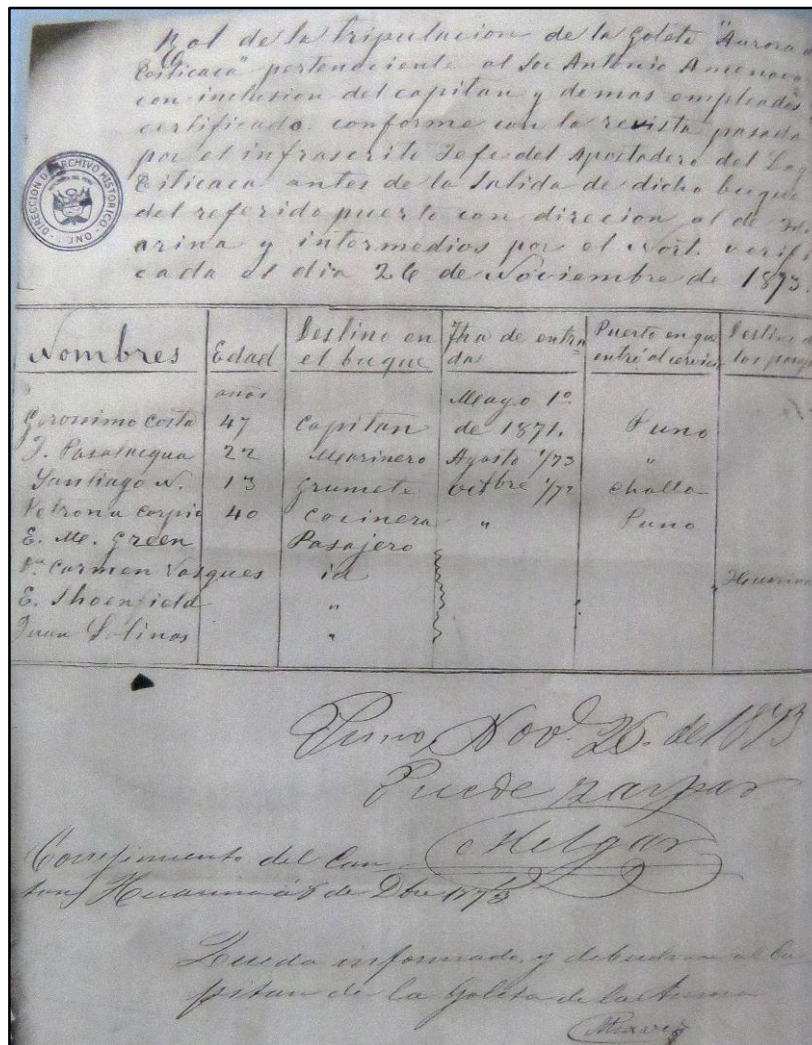 Rol de la tripulacion de la Goleta "Aurora d
Titicaca" perteneciente al Sor Antonio Amenava
con inclusion del capitan y demas empleados
certificado conforme con la revista pasada
por el infrascrito Jefe del Apostadero del Lag
Titicaca antes de la Salida de dicho buque
del referido puerto con direcion al de Hu
arina y intermedios por el Nort. verifi
cada el dia 26 de Noviembre de 1873.
DIRECCION DE ARCHIVO HISTORICO
Nombres Edad Destino en el buque Fha de entra das Puerto en que entró al servicio Destino d los pasaj
años Mayo 1º
Geronimo Costa 47 Capitan de 1871. Puno
J. Pasalacqua 22 Marinero Agosto 1/73 "
Santiago N. 13 Grumete Octbre 1/72 Challa
Petrona Carpio 40 Cocinera " Puno
E. Mc. Green Pasajero
Da. Carmen Vasques id Huarina
E. Shoenfield "
Juan Salinas "
Puno, Nov. 26. de 1873
Puede zarpar
Melgar
Corregimiento del Can
ton Huarina á 8 de Dbre 1873
Queda informado y al Ca
pitan de la Goleta de la